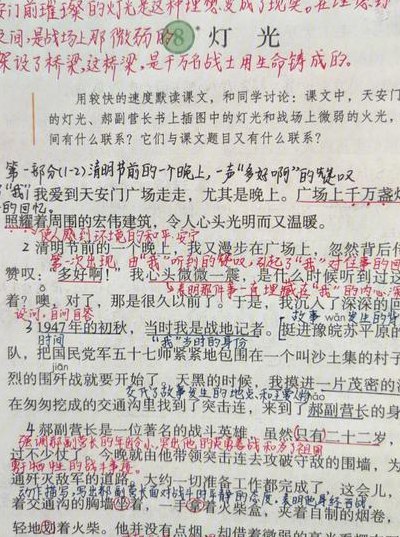 门前璀璨的灯光是这种理想变成了现实。在理想到
之间,是战场上那微弱的
架设了桥梁,这桥梁,是千万名战士用生命铸成的。
8 灯光
用较快的速度默读课文,和同学讨论:课文中,天安门
的灯光、郝副营长书上插图中的灯光和战场上微弱的火光,
间有什么联系?它们与课文题目又有什么联系?
第一部分(1-2)清明节前的一个晚上,一声“多好啊”的赞叹
了“我”
我爱到天安门广场走走,尤其是晚上。广场上千万盏灯
的回忆。
照耀着周围的宏伟建筑,令人心头光明而又温暖。
使人感到环境的和平、安宁
2 清明节前的一个晚上,我又漫步在广场上,忽然背后传
第一次出现 由“我”听到的赞叹,引起了“我”对往事的回
赞叹:“多好啊!”我心头微微一震,是什么时候听到过这
表明那件事一直埋藏在“我”的内心深
着?噢,对了,那是很久以前了。于是,我沉入了深深的回
设问:自问自答
故事
wǎn
发生的背
3 1947年的初秋,当时我是战地记者。挺进豫皖苏平原的
时间
“我”当时的身份
队,把国民党军五十七师紧紧地包围在一个叫沙土集的村子
jiān
烈的围歼战就要开始了。天黑的时候,我摸进一片茂密的
交代了故事发生的地点和
hǎo
在匆匆挖成的交通沟里找到了突击连,来到了郝副营长的身
4 郝副营长是一位著名的战斗英雄,虽然只有二十二岁,
强调郝副营长的年龄小,突出他的英勇善战和为了祖国
过不少仗了。今晚就由他带领突击连去攻破守敌的围墙,为
牺牲的
通歼灭敌军的道路。大约一切准备工作都完成了,这会儿,
动作描写,写出郝副营长面对战斗时平静的态度,表明他身经百战
着交通沟的胸墙坐着,一手拿着火柴盒,夹着自制的烟卷,
轻地划着火柴。他并没有点烟,却借着微弱的亮光看摆在